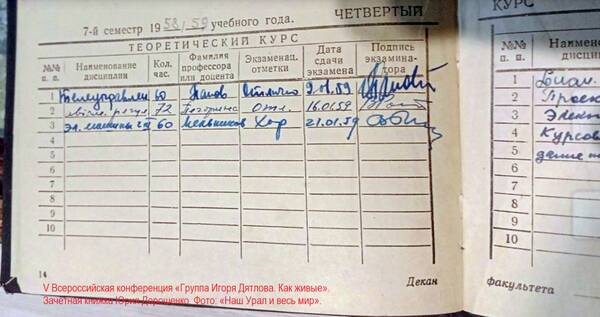 7-й семестр 1958/59 учебного года. ЧЕТВЕРТЫЙ
ТЕОРЕТИЧЕСКИЙ КУРС
№№ п. п. Наименование дисциплин Кол. час. Фамилия профессора или доцента Экзаменац. отметки Дата сдачи экзамена Подпись экзаменатора
1 Телеуправлен 60 Отлично 9.01.59
2 72 Отл. 16.01.59
3 Эл. машины 60 Мельников Хор 21.01.59
4
5
6
7
8
9
10
14
Декан
КУРС
№№ п. п. Наимено дисци
1 Диал.
2 Проек
3 Элект
4 Курсов
5
6
7
8
9
10
факультета
V Всероссийская конференция «Группа Игоря Дятлова. Как живые».
Зачетная книжка Юрия Дорошенко. Фото: «Наш Урал и весь мир».